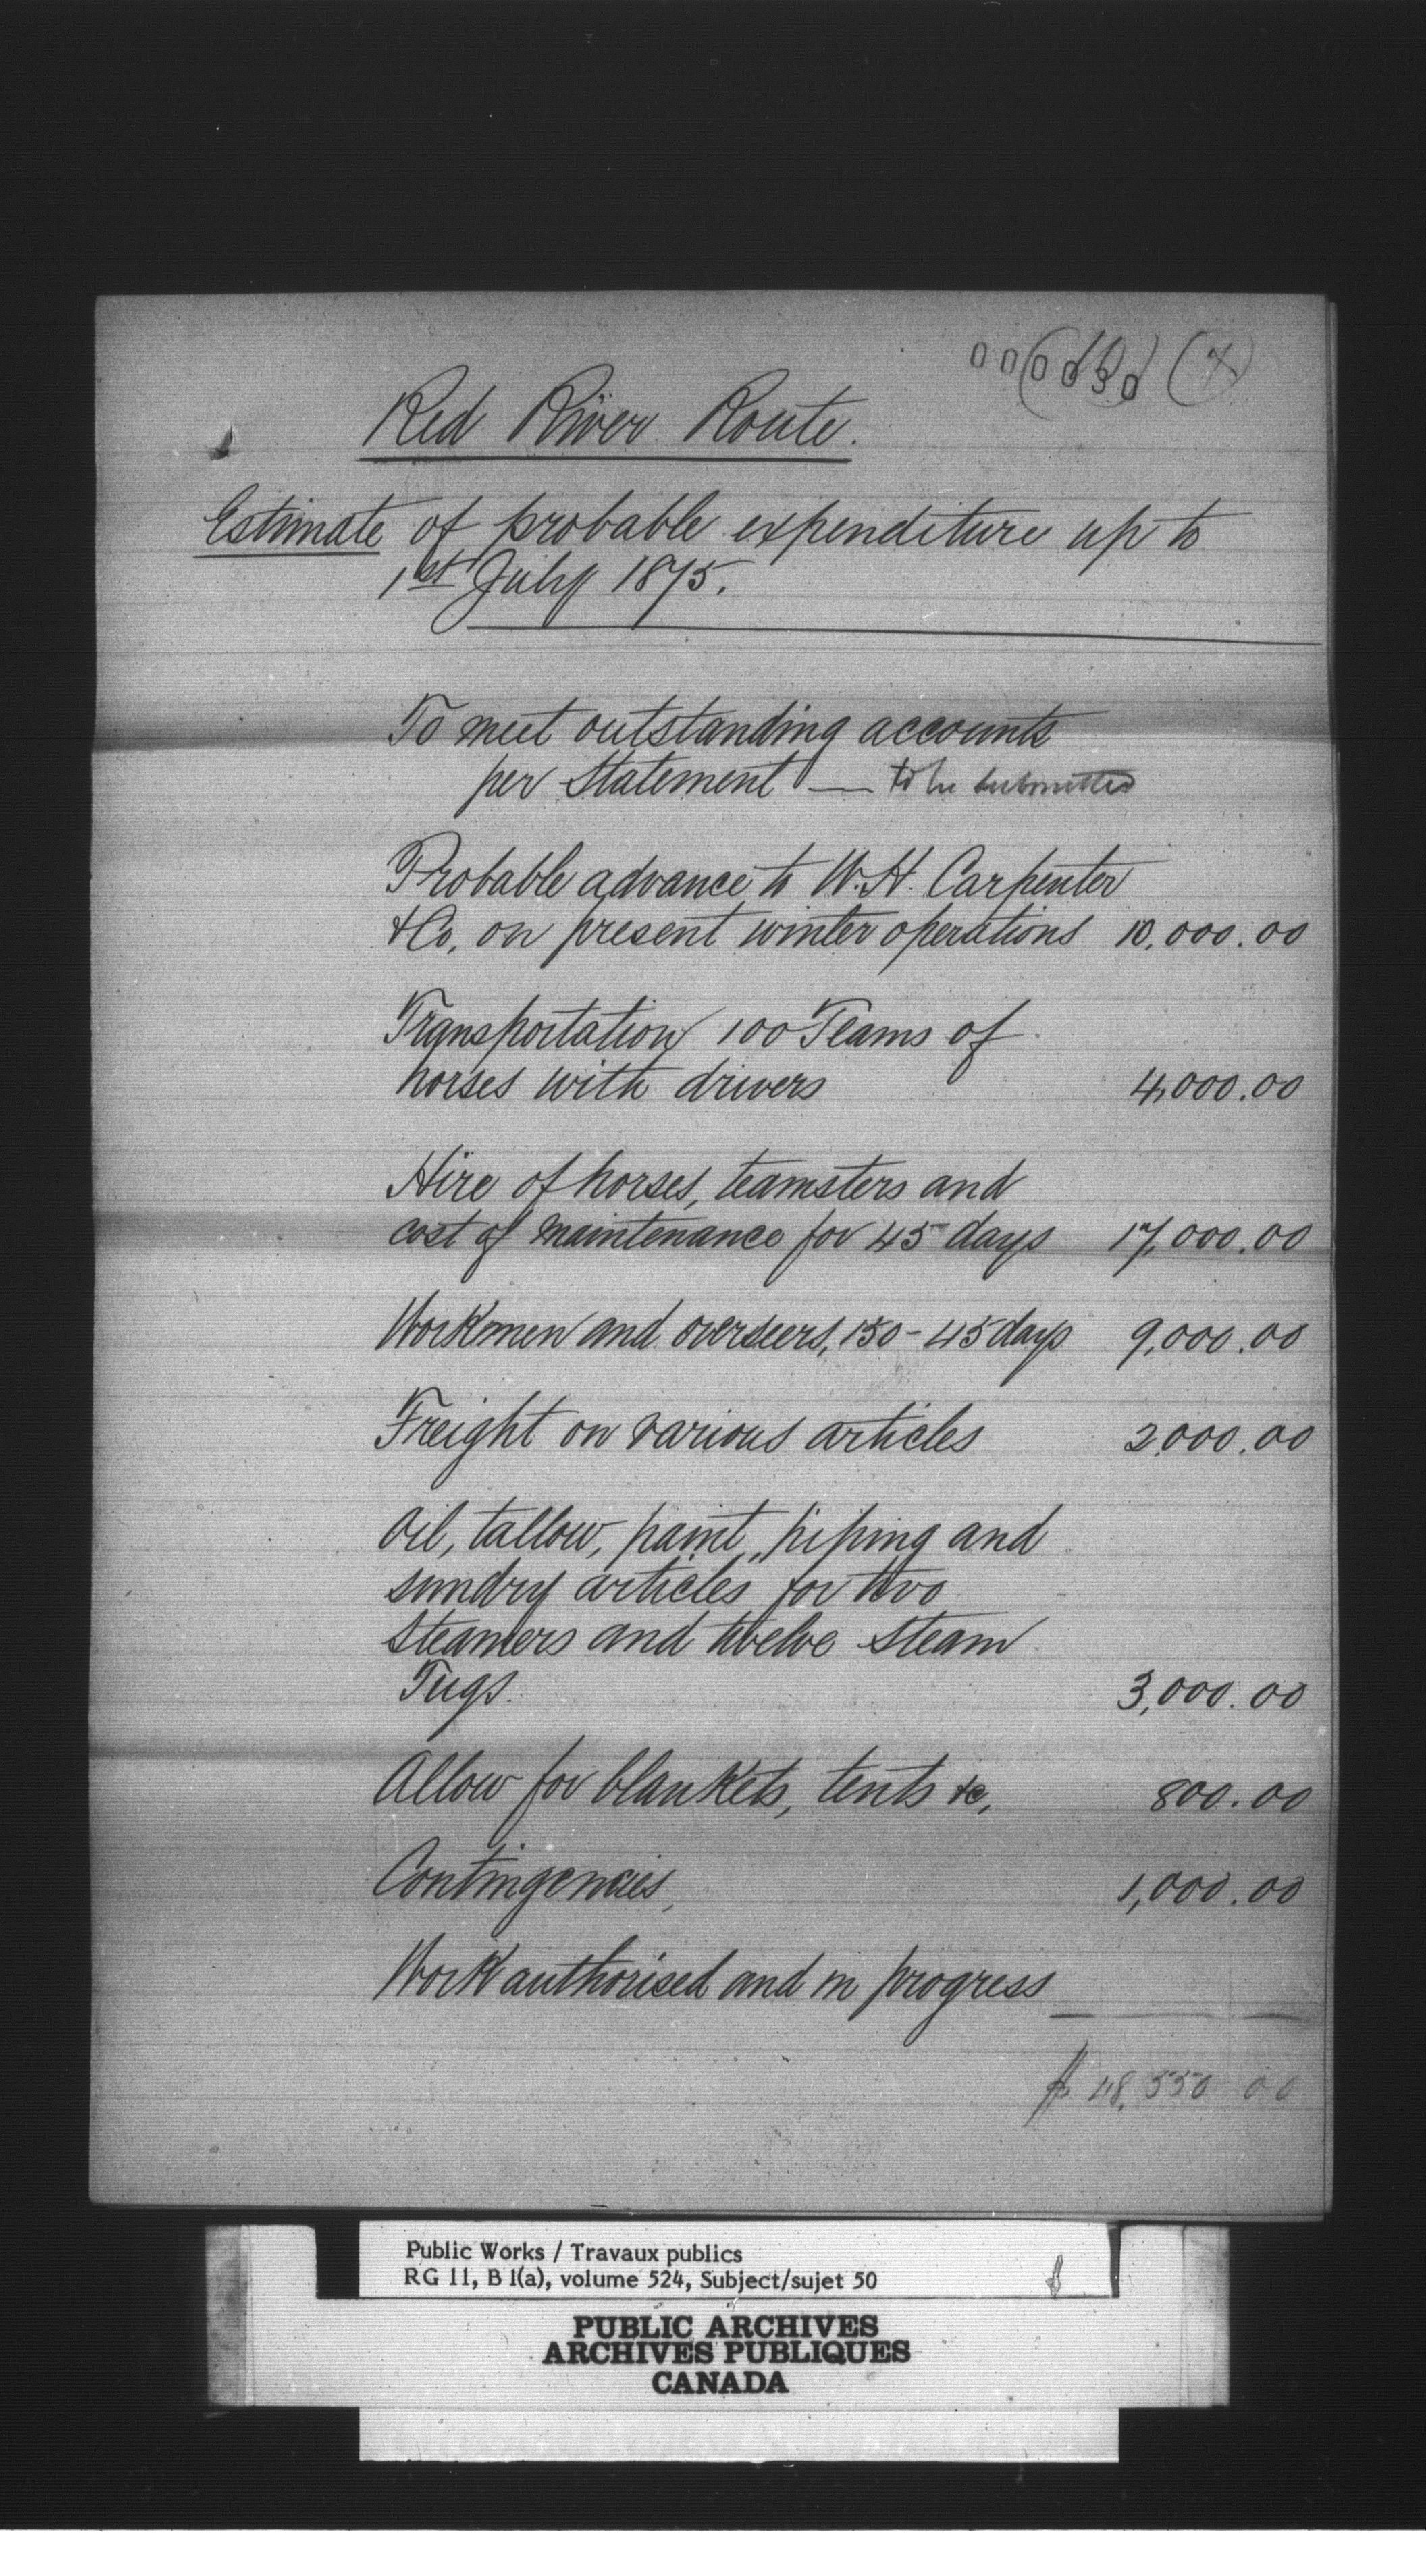 000030 (7)
Red River Route.
Estimate of probable expenditure up to
1st July 1875.
To meet outstanding accounts
per Statement — to be submitted
Probable advance to W. H. Carpenter
& Co, on present winter operations 10,000.00
Transportation 100 Teams of
horses with drivers 4,000.00
Hire of horses, teamsters and
cost of maintenance for 45 days 17,000.00
Workmen and overseers, 150 - 45 days 9,000.00
Freight on various articles 2,000.00
Oil, tallow, paint, piping and
sundry articles for two
Steamers and twelve Steam
Tugs. 3,000.00
Allow for blankets, tents &c, 800.00
Contingencies, 1,000.00
Work authorised and in progress
$ 48,550 00
Public Works / Travaux publics
RG 11, B 1(a), volume 524, Subject/sujet 50
PUBLIC ARCHIVES
ARCHIVES PUBLIQUES
CANADA